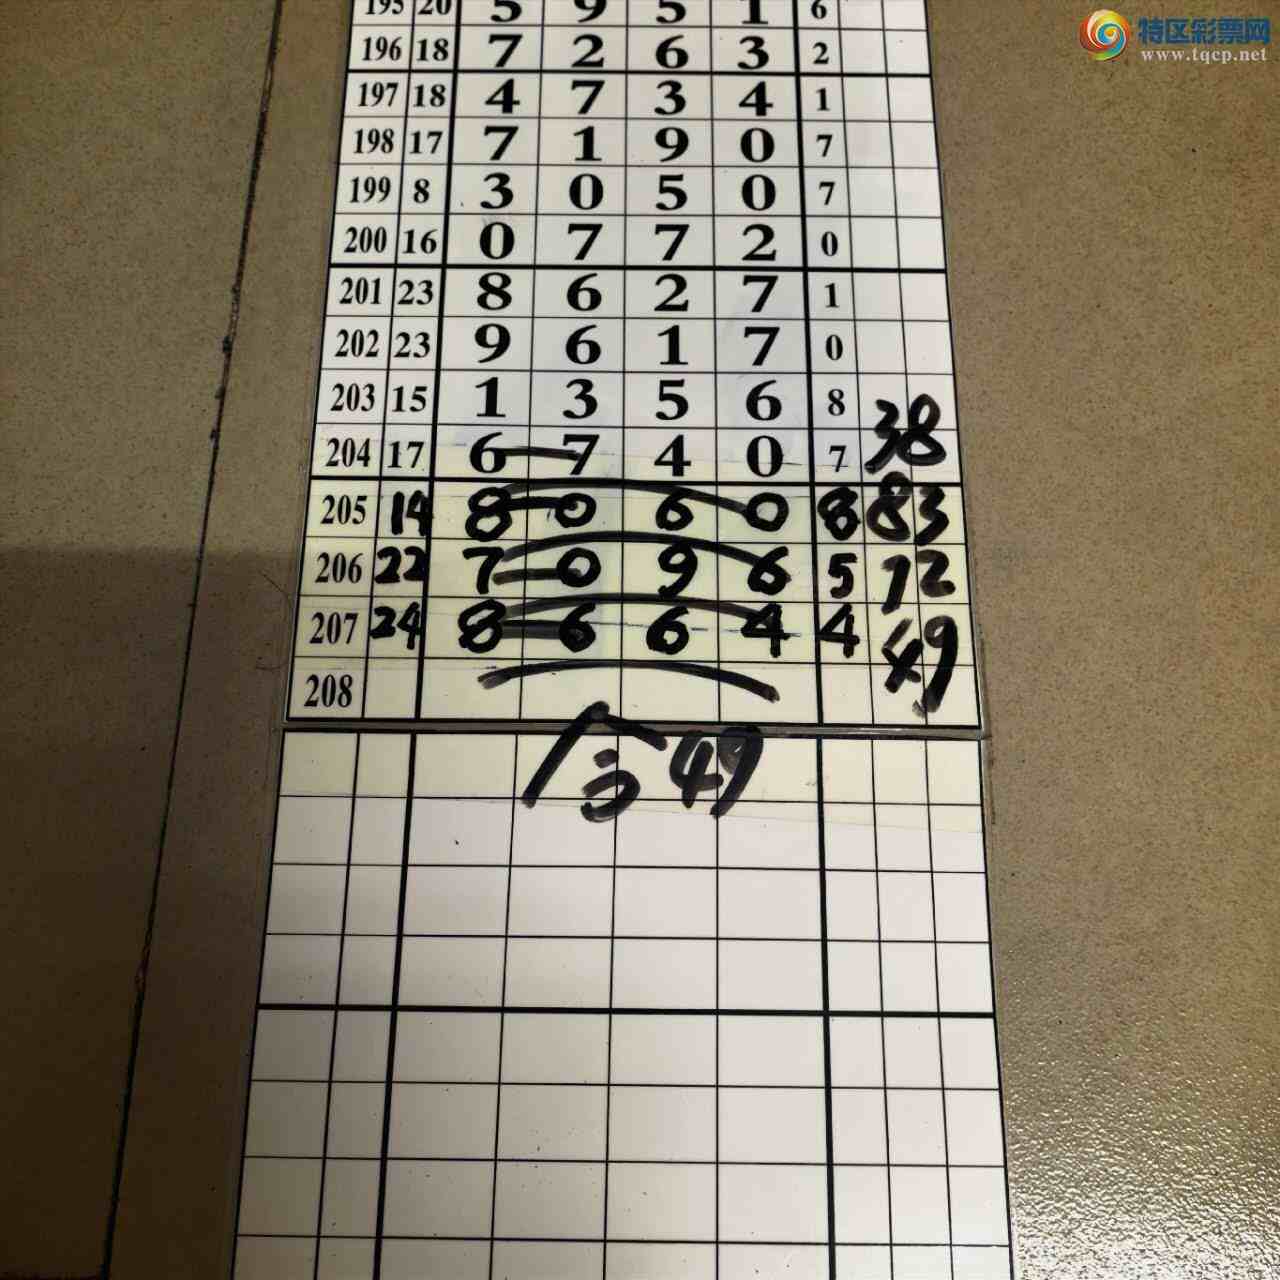 特区彩票网
www.tqcp.net
195 20 5 9 5 1 6
196 18 7 2 6 3 2
197 18 4 7 3 4 1
198 17 7 1 9 0 7
199 8 3 0 5 0 7
200 16 0 7 7 2 0
201 23 8 6 2 7 1
202 23 9 6 1 7 0
203 15 1 3 5 6 8
204 17 6 7 4 0 7 38
205 14 8 0 6 0 8 83
206 22 7 0 9 6 5 72
207 24 8 6 6 4 4 49
208
合49